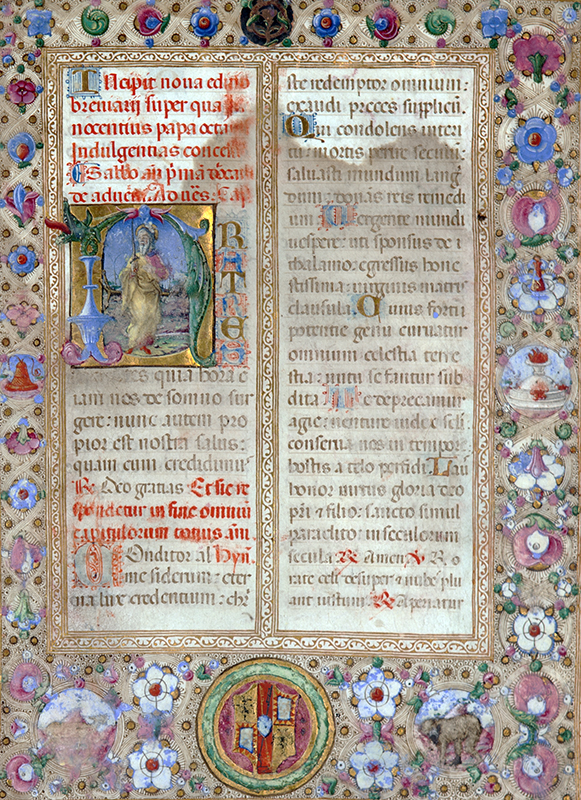 INcipit noua editio
breuiarij super qua
nocentius papa octa
Indulgentias conce
de aduen. Ad ues. Cap
RATRES
quia hora e
iam nos de somno sur
gere: nunc autem pro
pior est nostra salus:
quam cum credidimus
R Deo gratias. Et sic re
spondetur in fine omnium
capitulorum totius anni.
COnditor al Hym
me siderum: eter
na lux credentium: chri
ste redemptor omnium:
exaudi preces supplicu.
Qui condolens interi
tu: mortis perire seculu:
saluasti mundum lang
dum: donas reis remedi
um Uergente mundi
uespere: uti sponsus de t
thalamo: egressus hone
stissima: uirginis matris
clausula. Cuius forti
potentie genu curuatur
omnium celestia terre
stia: nutu se fantur sub
dita. Te deprecamur
agie: uenture iudex seli:
conserua nos in tempore
hostis a telo perfidi. Lau
honor uirtus gloria deo
pri & filio: sancto simul
paraclito: in seculorum
secula. R Amen. V Ro
rate celi desuper & nubes plu
ant iustum: R Aperiatur